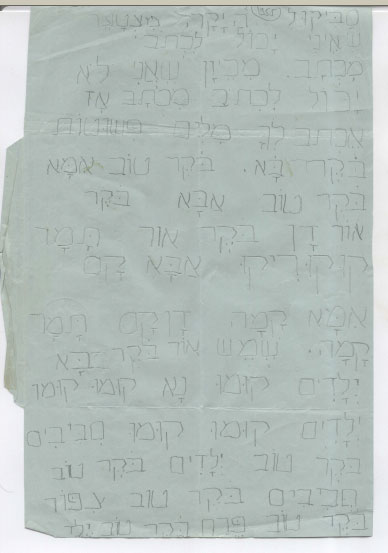 היקרה מצטער
שאיני יכול לכתוב
מכתב מכיון שאני לא
יכול לכתוב מכתב אז
אכתב לך מלים פשוטות
בֹּקֶר בָּא. בֹּקֶר טוֹב אִמָּא
בֹּקֶר טוֹב אַבָּא בֹּקֶר
אוֹר דָן בֹּקֶר אוֹר תָּמָר
קוּקוּרִיקוּ אַבָּא קָם
אִמָּא קָמָה דָן קָם תָּמָר
קָמָה. שֶׁמֶשׁ אוֹר בֹּקֶר בָּא
יְלָדִים קוּמוּ נָא קוּמוּ קוּמוּ
יְלָדִים קוּמוּ קוּמוּ חֲבִיבִים
בֹּקֶר טוֹב יְלָדִים בֹּקֶר טוֹב
חֲבִיבִים בֹּקֶר טוֹב צִפּוֹר
בֹּקֶר טוֹב פֶּרַח בֹּקֶר טוֹב